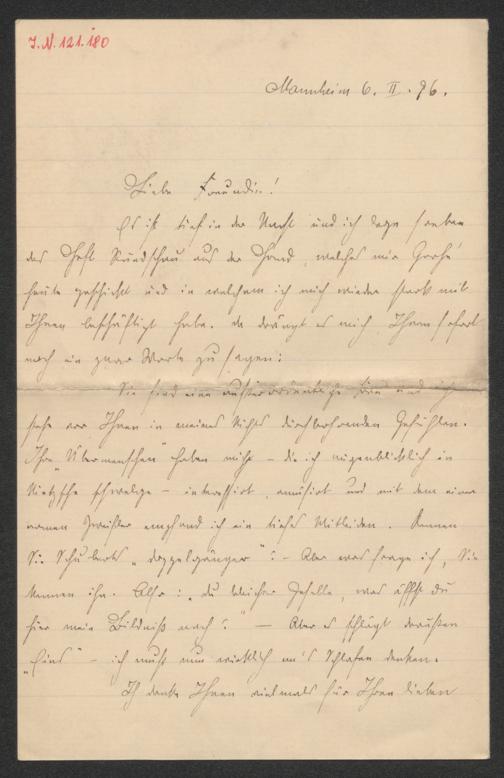 I.N. 121.180
Mannheim 6. II. 96.
Liebe Freundin!
Es ist tief in der Nacht und ich lege soeben
das Heft Rundschau aus der Hand, welches mir Grohe
heute geschickt und in welchem ich mich wieder stark mit
Ihnen beschäftigt habe. Da drängt es mich, Ihnen sofort
noch ein paar Worte zu sagen:
Sie sind eine außerordentliche Frau und ich
stehe vor Ihnen in meines Nichts durchbohrendem Gefühlen.
Ihre „Übermenschen" haben mich – die ich augenblicklich in
Nietzsche schwelge – interessirt, amüsirt und mit dem einen
armen Zweifler empfand ich ein tiefes Mitleiden. Kennen
Sie Schuberts „Doppelgänger"? – Aber was frage ich, Sie
kennen ihn. Also: „du bleicher Geselle, was äffst du
hier mein Bildniß nach?" — Aber es schlägt draußen
„Eins" – ich muß nun wirklich an's Schlafen denken.
Ich danke Ihnen vielmals für Ihren lieben